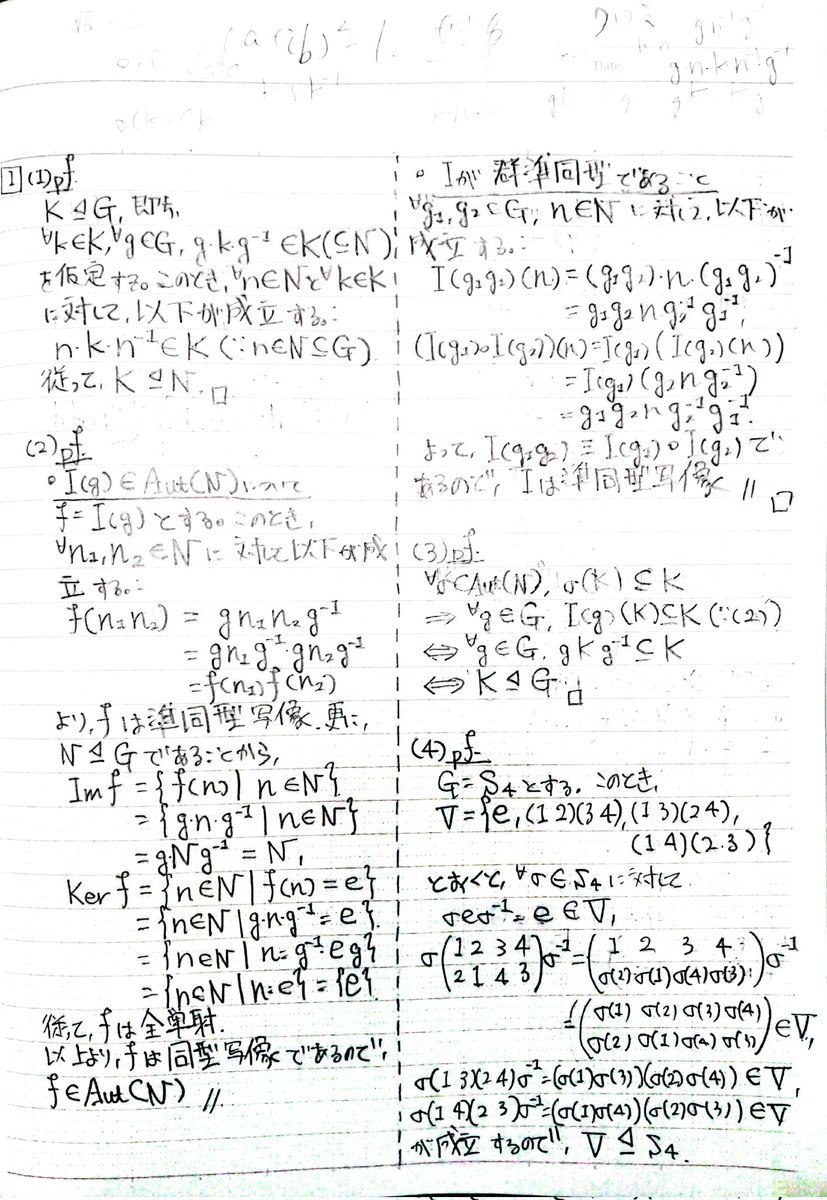 (a+ib)² = 1.
Date
gn⁻¹g⁻¹
gn・k・n⁻¹g⁻¹
1 (1) pf.
K ⊴ G, 即ち,
∀k∈K, ∀g∈G, g・k・g⁻¹ ∈K(⊆N)
を仮定する。このとき, ∀n∈Nと∀k∈K
に対して, 以下が成立する。:
n・k・n⁻¹∈K (∵n∈N⊆G)
従って, K ⊴ N. □
(2) pf.
◦ I(g)∈Aut(N)について
f=I(g)とする。このとき,
∀n₁, n₂∈Nに対して以下が成
立する。:
f(n₁n₂) = gn₁n₂g⁻¹
= gn₁g⁻¹・gn₂g⁻¹
= f(n₁)f(n₂)
より, fは準同型写像. 更に,
N⊴Gであることから,
Im f = {f(n) | n∈N}
= {g・n・g⁻¹ | n∈N}
= gNg⁻¹ = N,
Ker f = {n∈N | f(n) = e}
= {n∈N | g・n・g⁻¹ = e}
= {n∈N | n = g⁻¹・eg}
= {n∈N | n = e} = {e}.
従って, fは全単射.
以上より, fは同型写像であるので,
f∈Aut(N) //
◦ Iが群準同型であること
∀g₁, g₂∈G, n∈Nに対して, 以下が
成立する。:
I(g₁g₂)(n) = (g₁g₂)・n・(g₁g₂)⁻¹
= g₁g₂ n g₂⁻¹g₁⁻¹,
(I(g₁)∘I(g₂))(n) = I(g₁)(I(g₂)(n))
= I(g₁)(g₂ n g₂⁻¹)
= g₁g₂ n g₂⁻¹g₁⁻¹.
よって, I(g₁g₂) ≡ I(g₁)∘I(g₂)で
あるので, Iは準同型写像 // □
(3) pf.
∀σ∈Aut(N), σ(K) ⊆ K
⇒ ∀g∈G, I(g)(K)⊆K (∵(2))
⇔ ∀g∈G. gKg⁻¹⊆K
⇔ K ⊴ G □
(4) pf.
G=S₄とする. このとき,
V={e, (1 2)(3 4), (1 3)(2 4),
(1 4)(2 3)}
とおくと, ∀σ∈S₄に対して
σeσ⁻¹ = e ∈V,
σ(1 2 3 4 / 2 1 4 3)σ⁻¹ = (1 2 3 4 / σ(2) σ(1) σ(4) σ(3))σ⁻¹
= (σ(1) σ(2) σ(3) σ(4) / σ(2) σ(1) σ(4) σ(3))∈V,
σ(1 3)(2 4)σ⁻¹=(σ(1)σ(3))(σ(2)σ(4)) ∈V,
σ(1 4)(2 3)σ⁻¹=(σ(1)σ(4))(σ(2)σ(3)) ∈V
が成立するので, V ⊴ S₄.